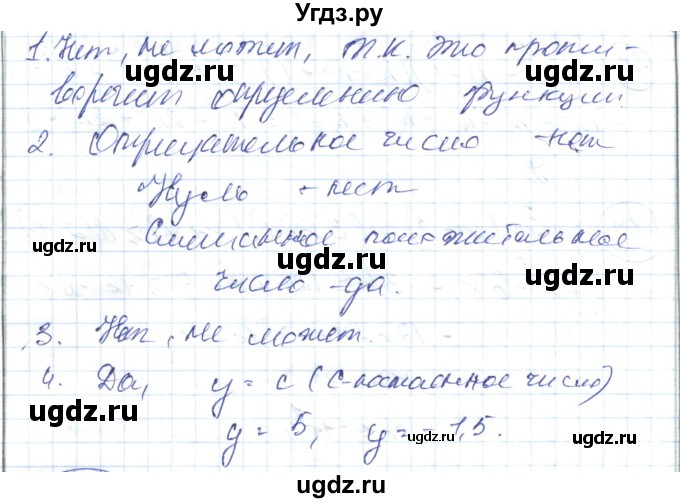 Угдз.ру
1. Нет, не может, т.к. это проти-
ugdz.ru ugdz.ru
воречит определению функции.
2. Отрицательное число - нет
Нуль - нет
ugdz.ru ugdz.ru ugdz.ru
Смешанное положительное
число - да.
3. Нет, не может.
ugdz.ru
4. Да, y = c (c - постоянное число)
ugdz.ru ugdz.ru
y = 5, y = -1,5.
ugdz.ru ugdz.ru